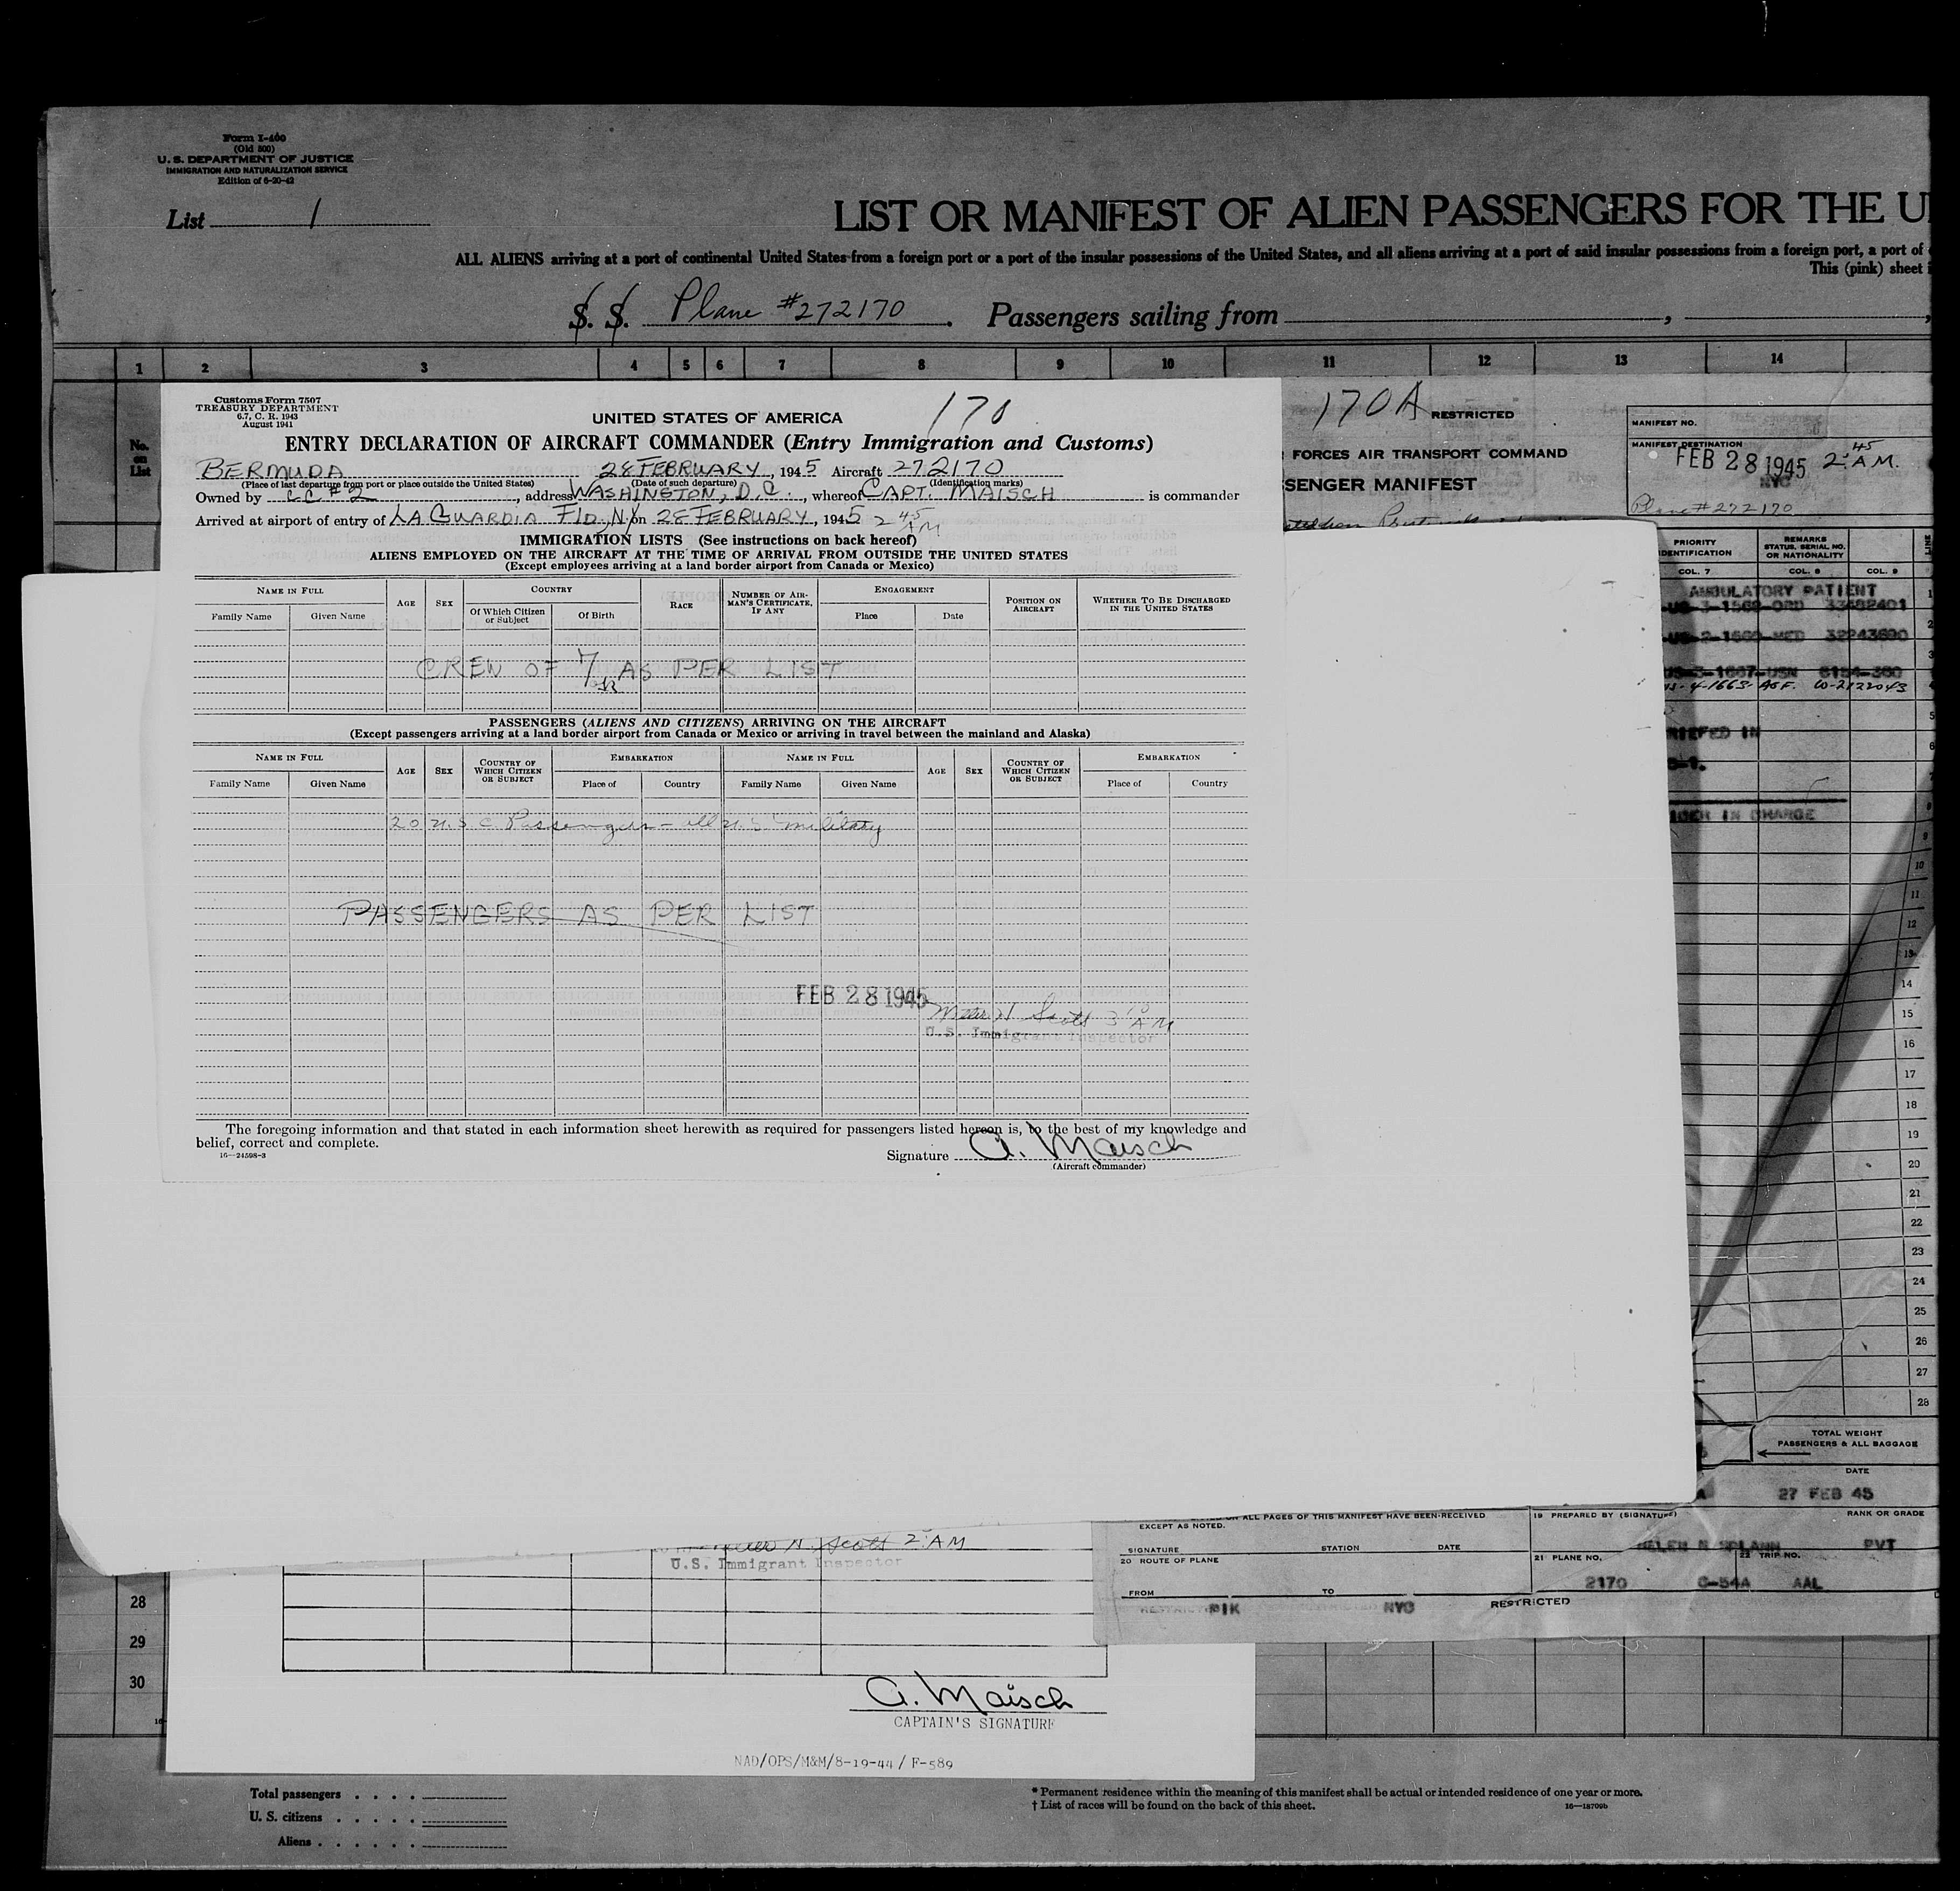 Form I-400
(Old 500)
U. S. DEPARTMENT OF JUSTICE
IMMIGRATION AND NATURALIZATION SERVICE
Edition of 6-20-42
List 1
LIST OR MANIFEST OF ALIEN PASSENGERS FOR THE U
ALL ALIENS arriving at a port of continental United States from a foreign port or a port of the insular possessions of the United States, and all aliens arriving at a port of said insular possessions from a foreign port, a port of
This (pink) sheet
S. S. Plane #272170. Passengers sailing from
1 2 3 4 5 6 7 8 9 10 11 12 13 14
No. on List
Customs Form 7507
TREASURY DEPARTMENT
6.7, C. R. 1943
August 1941
UNITED STATES OF AMERICA
170
ENTRY DECLARATION OF AIRCRAFT COMMANDER (Entry Immigration and Customs)
BERMUDA 28 FEBRUARY, 1945 Aircraft 272170
(Place of last departure from port or place outside the United States) (Date of such departure) (Identification marks)
Owned by CC #2, address WASHINGTON, D.C., whereof CAPT. MAISCH is commander
Arrived at airport of entry of LA GUARDIA FLD, N.Y. on 28 FEBRUARY, 1945 2 45 AM
IMMIGRATION LISTS (See instructions on back hereof)
ALIENS EMPLOYED ON THE AIRCRAFT AT THE TIME OF ARRIVAL FROM OUTSIDE THE UNITED STATES
(Except employees arriving at a land border airport from Canada or Mexico)
NAME IN FULL AGE SEX COUNTRY RACE NUMBER OF AIRMAN'S CERTIFICATE, IF ANY ENGAGEMENT POSITION ON AIRCRAFT WHETHER TO BE DISCHARGED IN THE UNITED STATES
Family Name Given Name Of Which Citizen or Subject Of Birth Place Date
CREW OF 7 AS PER LIST
PASSENGERS (ALIENS AND CITIZENS) ARRIVING ON THE AIRCRAFT
(Except passengers arriving at a land border airport from Canada or Mexico or arriving in travel between the mainland and Alaska)
NAME IN FULL AGE SEX COUNTRY OF WHICH CITIZEN OR SUBJECT EMBARKATION NAME IN FULL AGE SEX COUNTRY OF WHICH CITIZEN OR SUBJECT EMBARKATION
Family Name Given Name Place of Country Family Name Given Name Place of Country
20 U.S.C. Passengers - all U.S. military
PASSENGERS AS PER LIST
FEB 28 1945
Scott 3 10 AM
U.S. Immigrant Inspector
The foregoing information and that stated in each information sheet herewith as required for passengers listed hereon is, to the best of my knowledge and
belief, correct and complete.
16—24598-3
Signature A. Maisch
(Aircraft commander)
170A RESTRICTED
FORCES AIR TRANSPORT COMMAND
SENGER MANIFEST
MANIFEST NO.
MANIFEST DESTINATION
FEB 28 1945 2 45 A.M.
NYC
Plane #272170
PRIORITY IDENTIFICATION REMARKS STATUS, SERIAL NO. OR NATIONALITY LINE
COL. 7 COL. 8 COL. 9
AMBULATORY PATIENT
US-3-1562-ORD 33482401
US-2-1660-MED 32243690
US-3-1667-USN 8154-360
US-4-1663-ASF. W-2122043
RIEFED IN
IN CHARGE
1
2
3
4
5
6
7
8
9
10
11
12
13
14
15
16
17
18
19
20
21
22
23
24
25
26
27
28
TOTAL WEIGHT
PASSENGERS & ALL BAGGAGE
DATE
27 FEB 45
ALL PAGES OF THIS MANIFEST HAVE BEEN RECEIVED
EXCEPT AS NOTED.
19 PREPARED BY (SIGNATURE) RANK OR GRADE
SIGNATURE STATION DATE
HELEN PVT
20 ROUTE OF PLANE
21 PLANE NO. 22 TRIP NO.
2170 C-54A AAL
FROM TO
PIK NYC
RESTRICTED
N. Scott 2 AM
U.S. Immigrant Inspector
28
29
30
A. Maisch
CAPTAIN'S SIGNATURE
NAD/OPS/M&M/8-19-44 / F-589
Total passengers
U. S. citizens
Aliens
* Permanent residence within the meaning of this manifest shall be actual or intended residence of one year or more.
† List of races will be found on the back of this sheet.
16—18709b